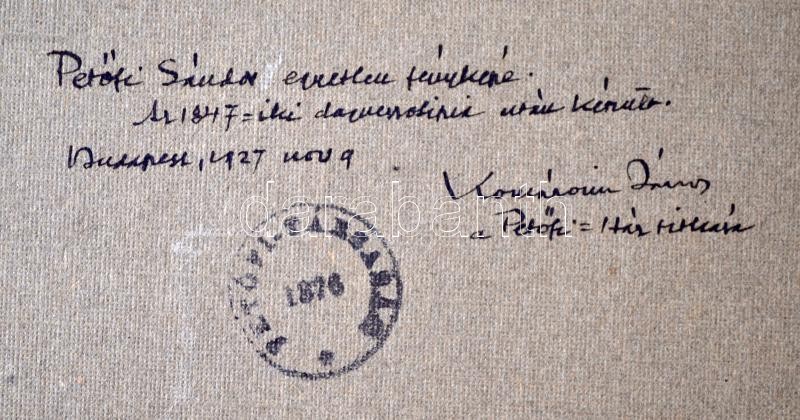 Petőfi Sándor egyetlen fényképe.
Az 1847=iki daguerrotipia után készült.
Budapest, 1927 nov 9
János
a Petőfi=Ház titkára
PETŐFI TÁRSASÁG
1876
darabanth